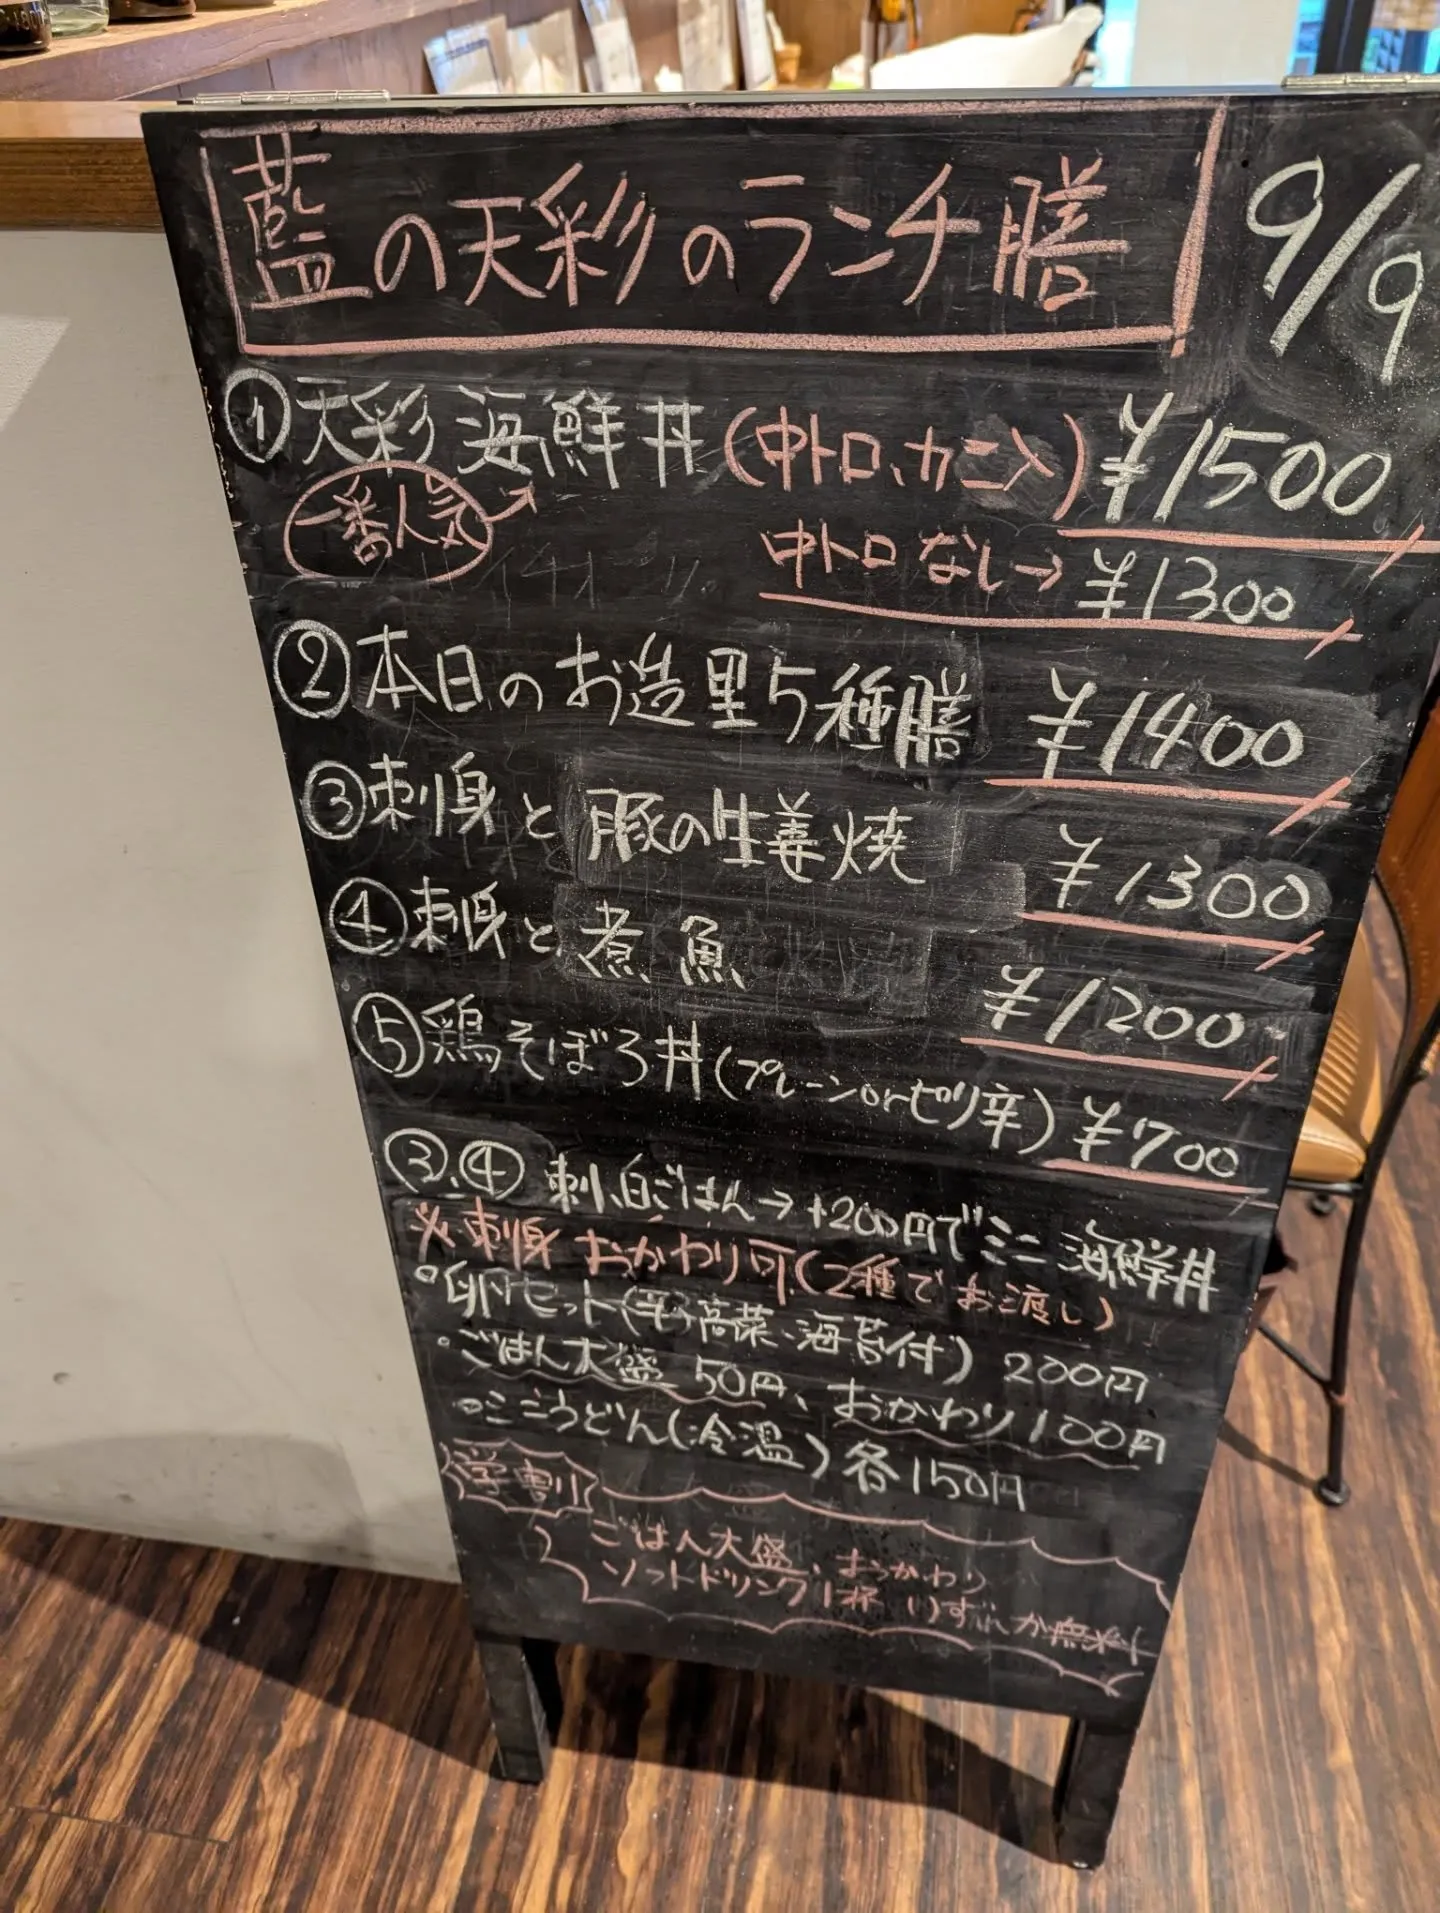 藍の天彩のランチ膳
9/9
①天彩海鮮丼(中トロ、カニ入)¥1500
一番人気→
中トロなし→¥1300
②本日のお造里5種膳 ¥1400
③刺身と豚の生姜焼 ¥1300
④刺身と煮魚 ¥1200
⑤鶏そぼろ丼(プレーンorピリ辛)¥700
③.④ 刺、白ごはん→+200円でミニ海鮮丼
※刺身おかわり可(2種でお渡し)
○卵セット(辛子高菜、海苔付)200円
・ごはん大盛 50円、おかわり100円
○ミニうどん(冷温)各150円
学割
ごはん大盛、おかわり
ソフトドリンク1杯 いずれか無料